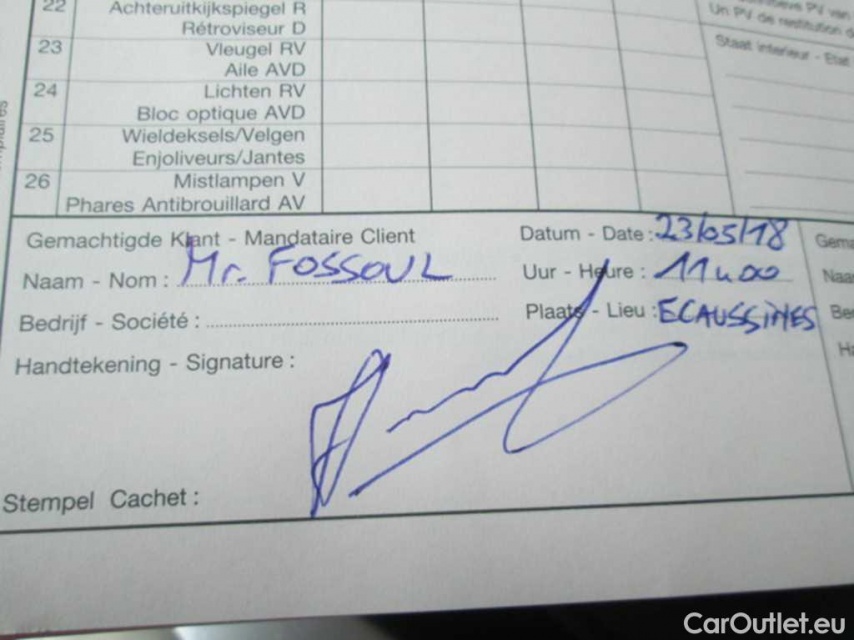 22 Achteruitkijkspiegel R
Rétroviseur D
23 Vleugel RV
Aile AVD
24 Lichten RV
Bloc optique AVD
25 Wieldeksels/Velgen
Enjoliveurs/Jantes
26 Mistlampen V
Phares Antibrouillard AV
PV van
Un PV de restitution d
Staat interieur - Etat
Gemachtigde Klant - Mandataire Client
Naam - Nom : Mr. FOSSOUL
Bedrijf - Société :
Handtekening - Signature :
Stempel Cachet :
Datum - Date : 23/05/18
Uur - Heure : 11h00
Plaats - Lieu : ECAUSSINES
Gema
Naa
Be
Ha
CarOutlet.eu